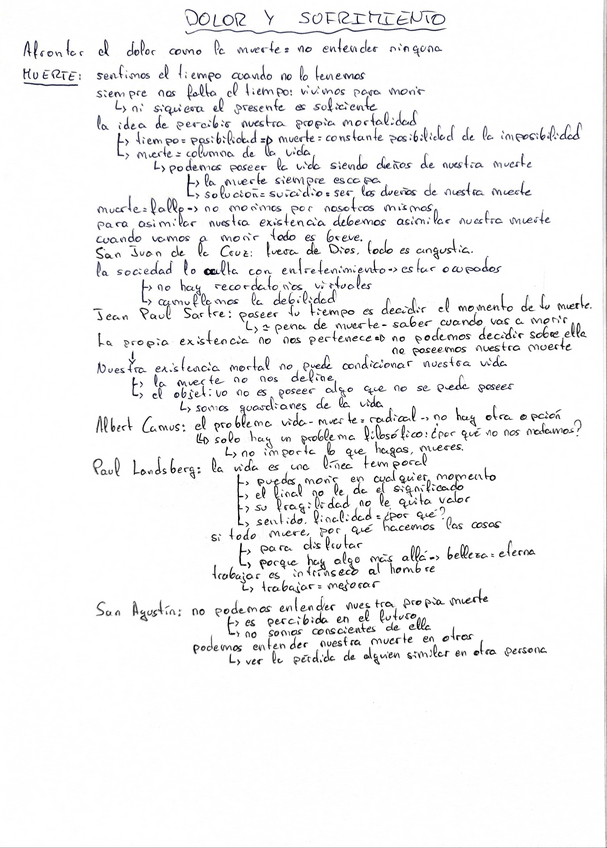 DOLOR Y SUFRIMIENTO
Afrontar el dolor como la muerte = no entender ninguna
MUERTE: sentimos el tiempo cuando no lo tenemos
siempre nos falta el tiempo: vivimos para morir
↳ ni siquiera el presente es suficiente
la idea de percibir nuestra propia mortalidad
↳ tiempo = posibilidad => muerte = constante posibilidad de la imposibilidad
↳ muerte = columna de la vida
↳ podemos poseer la vida siendo dueños de nuestra muerte
↳ la muerte siempre escapa
↳ solución = suicidio = ser los dueños de nuestra muerte
muerte = fallo -> no morimos por nosotros mismos
para asimilar nuestra existencia debemos asimilar nuestra muerte
cuando vamos a morir todo es breve.
San Juan de la Cruz: fuera de Dios, todo es angustia.
la sociedad lo oculta con entretenimiento -> estar ocupados
↳ no hay recordatorios virtuales
↳ camuflamos la debilidad
Jean Paul Sartre: poseer tu tiempo es decidir el momento de tu muerte.
↳ = pena de muerte - saber cuando vas a morir
La propia existencia no nos pertenece => no podemos decidir sobre ella
↓ no poseemos nuestra muerte
Nuestra existencia mortal no puede condicionar nuestra vida
↳ la muerte no nos define
↳ el objetivo no es poseer algo que no se puede poseer
↳ somos guardianes de la vida
Albert Camus: el problema vida - muerte = radical -> no hay otra opción
↳ solo hay un problema filosófico: ¿por qué no nos matamos?
↳ no importa lo que hagas, mueres.
Paul Landsberg: la vida es una línea temporal
↳ puedes morir en cualquier momento
↳ el final no le da el significado
↳ su fragilidad no le quita valor
↳ sentido, finalidad = ¿por qué?
si todo muere, por qué hacemos las cosas
↳ para disfrutar
↳ porque hay algo más allá -> belleza = eterna
trabajar es intrínseco al hombre
↳ trabajar = mejorar
San Agustín: no podemos entender nuestra propia muerte
↳ es percibida en el futuro
↳ no somos conscientes de ella
podemos entender nuestra muerte en otros
↳ ver la pérdida de alguien similar en otra persona